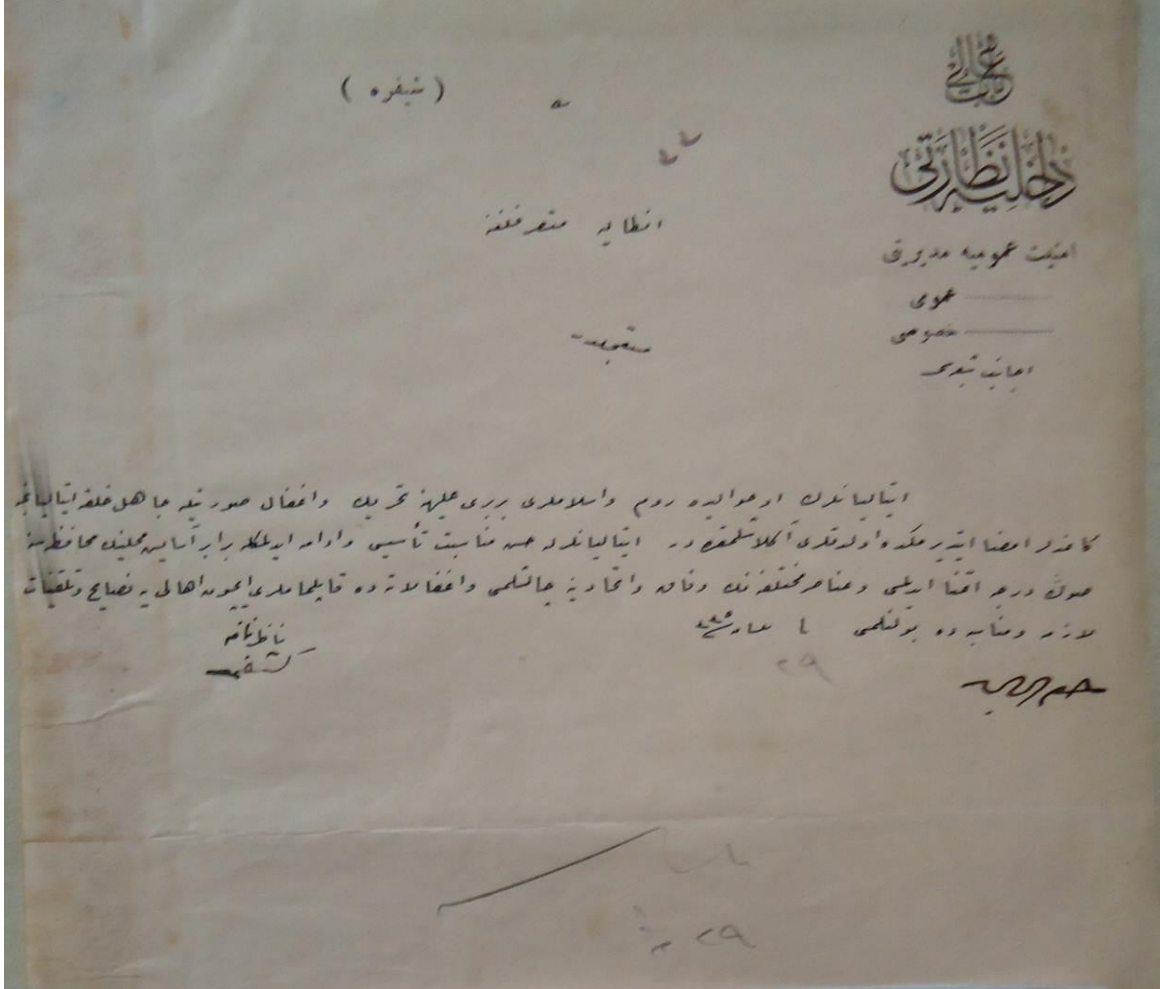 باب عالى
داخلیه نظارتى
( شیفره )
امنیت عمومیه مدیریتى
عمومى
خصوصى
انطالیه متصرفلغنه
مستعجلدر
ایتالیانلرك او حوالیده روم و اسلاملرى بربرى علیهنه تحریك و اغفال صورتیله جاهل خلقه ایتالیانجه
كاغدلر امضا ایتدیرمكده اولدقلرى آكلاشلمقده در ایتالیانلرله حسن مناسبت تأسیس و ادامه ایدلمكله برابر آسایش محلینك محافظه سنه
صوڭ درجه اعتنا ایدلمسى و عناصر مختلفه نك وفاق و اتحادینه چالشلمسى و اغفالاته ده قاپلماملرى ایچون اهالى یه نصایح و تلقینات
لازمه ده بولنلمسى
ناظر نامنه
٢٩
٢٩